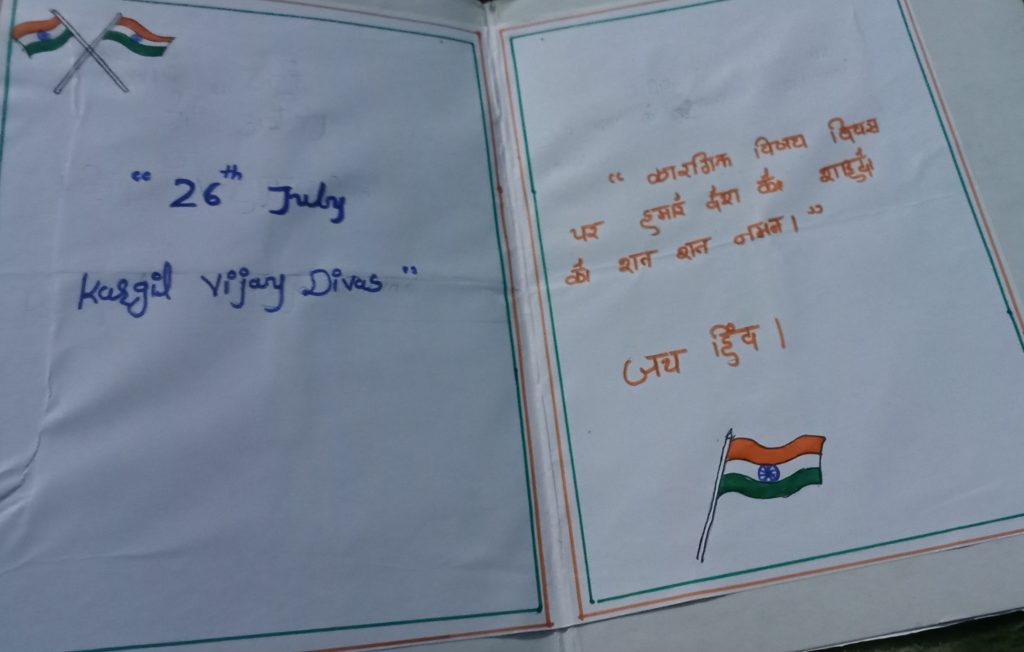 “ 26th July
Kargil Vijay Divas ”
“ कारगिल विजय दिवस
पर हमारे देश के शहीदों
को शत शत नमन। ”
जय हिंद।